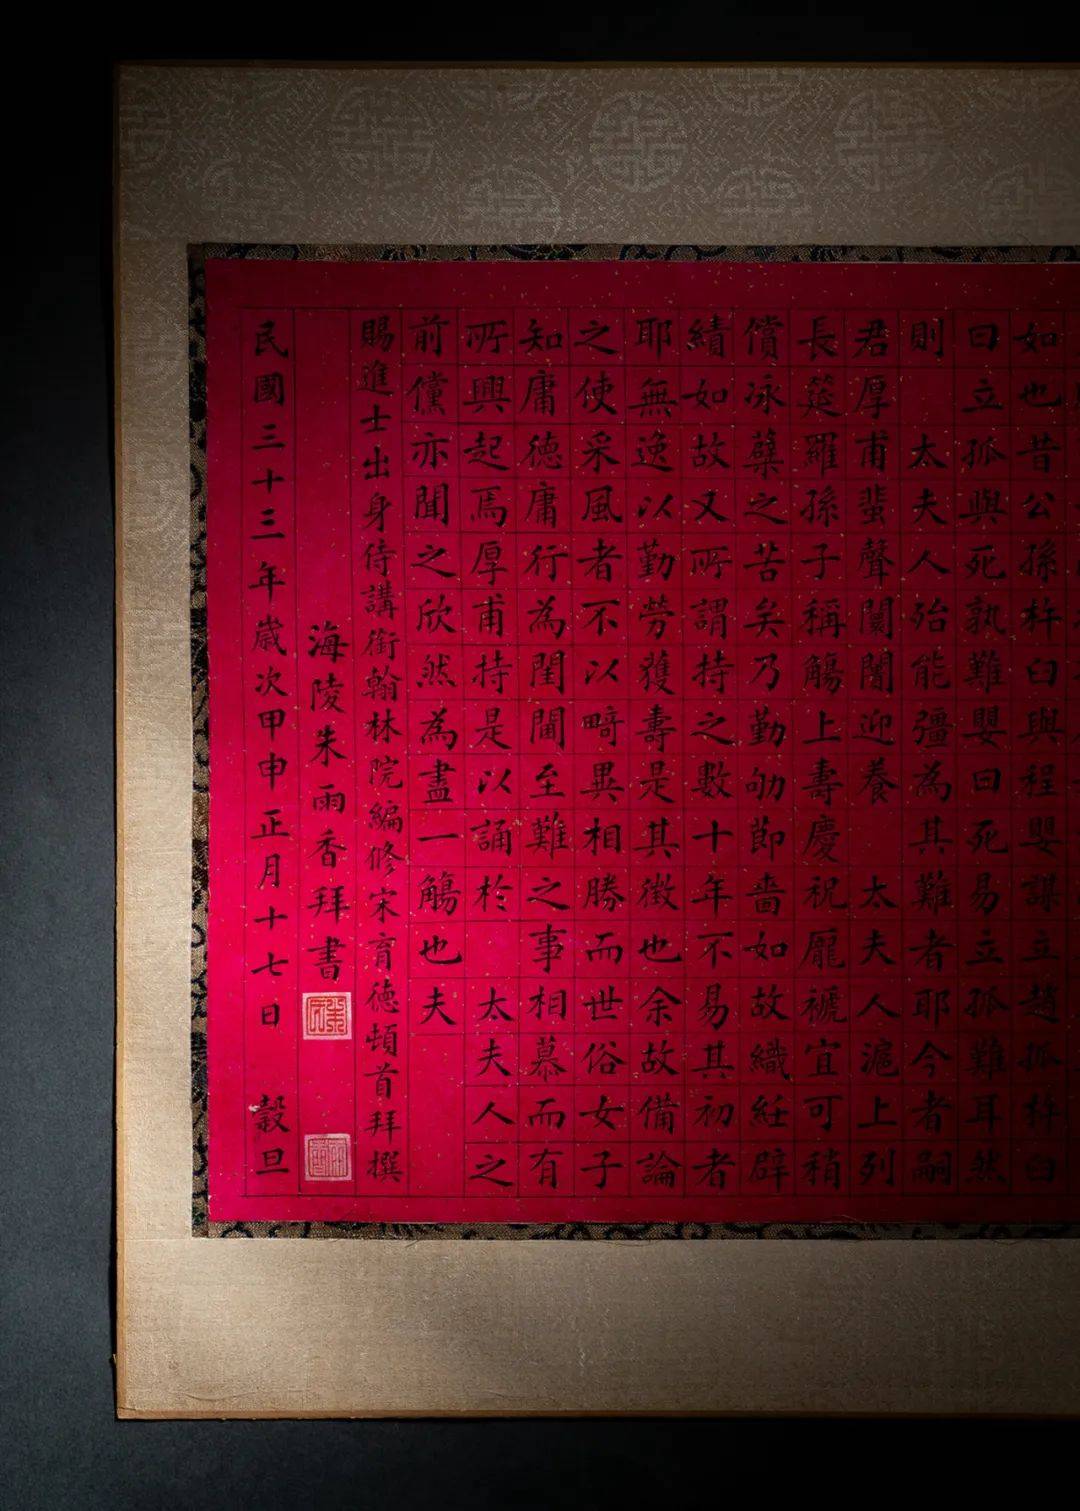 如也昔公孫杵臼與程嬰謀立趙孤杵臼
曰立孤與死孰難嬰曰死易立孤難耳然
則太夫人殆能彊為其難者耶今者嗣
君厚甫蜚聲闤闠迎養太夫人滬上列
長筵羅孫子稱觴上壽慶祝厖褫宜可稍
償冰蘗之苦矣乃勤劬節嗇如故織紝辟
績如故又所謂持之數十年不易其初者
耶無逸以勤勞獲壽是其徵也余故備論
之使采風者不以畸異相勝而世俗女子
知庸德庸行為閨閫至難之事相慕而有
所興起焉厚甫持是以誦於太夫人之
前儻亦聞之欣然為盡一觴也夫
賜進士出身侍講銜翰林院編修宋育德頓首拜撰
海陵朱雨香拜書
民國三十三年歲次甲申正月十七日 穀旦